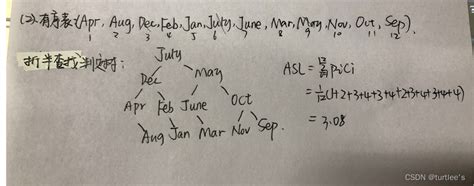 (2).有序表(Apr, Aug, Dec, Feb, Jan, July, June, Mar, May, Nov, Oct, Sep).
1 2 3 4 5 6 7 8 9 10 11 12
折半查找判定树:
July
Dec May
Apr Feb June Oct
Aug Jan Mar Nov Sep.
ASL = Σ PiCi
= 1/12(1+2+3+4+3+4+2+3+4+3+4+4)
= 3.08
CSDN @turtlee's